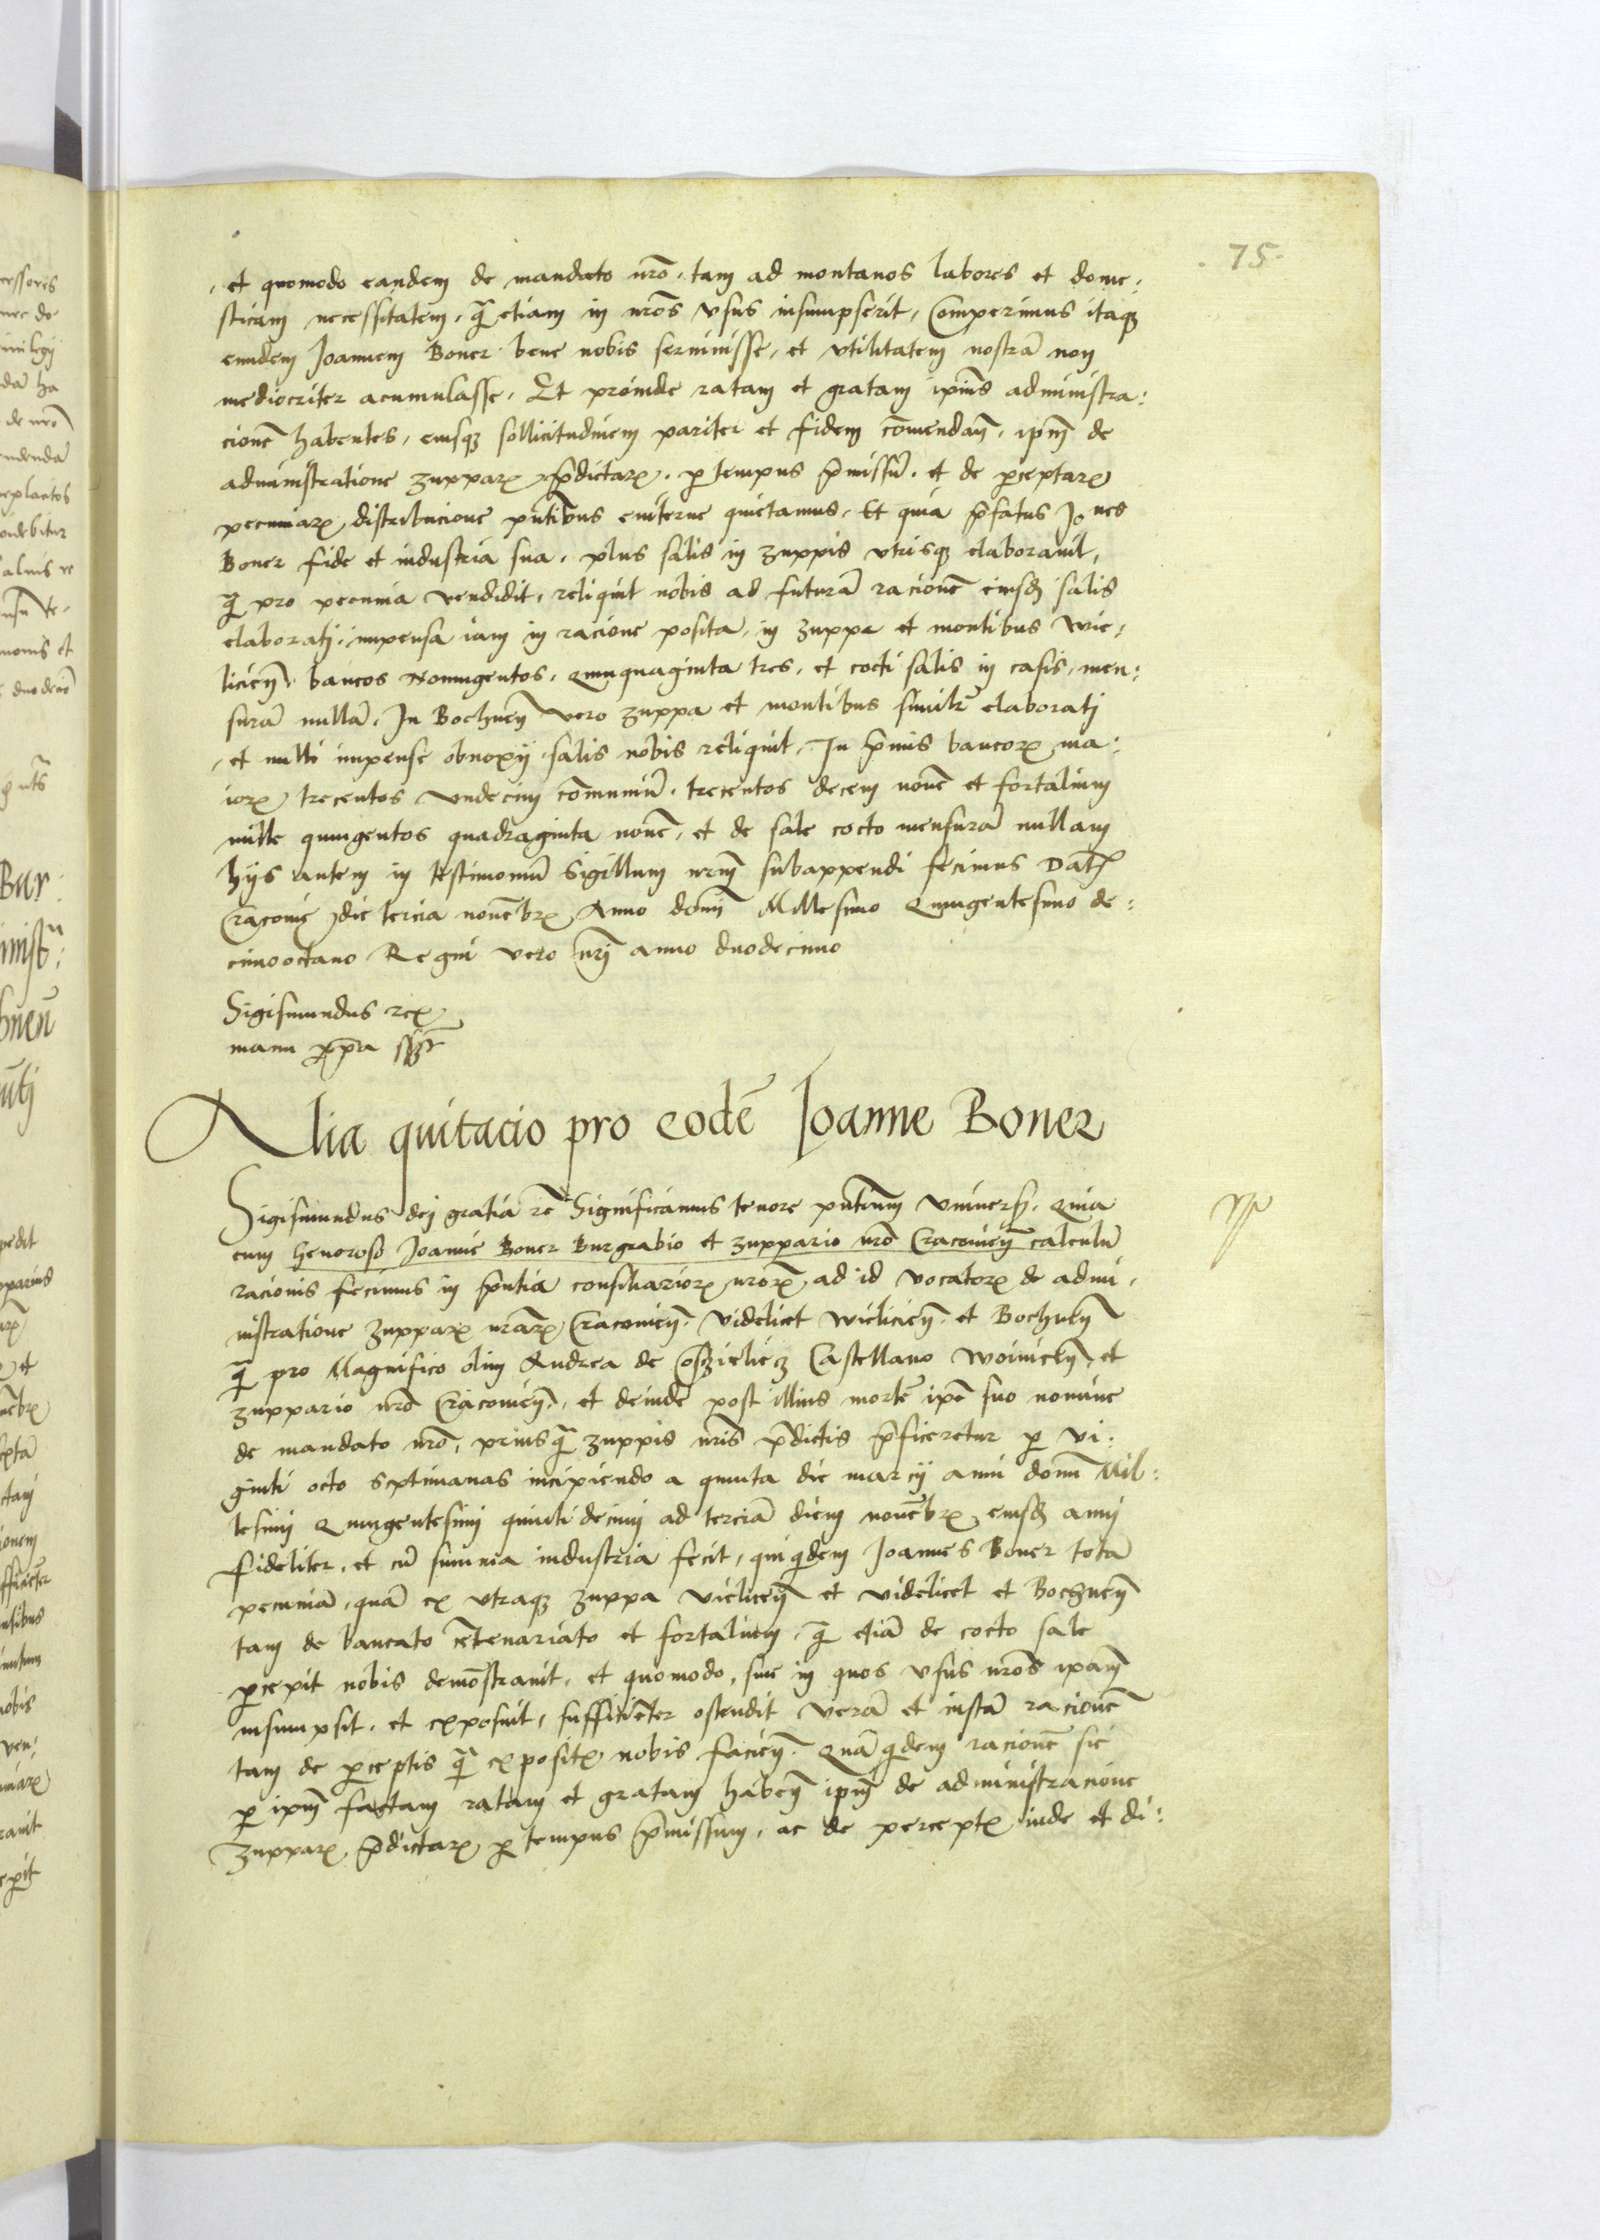 75
et quomodo eandem de mandato nr̄o, tam ad montanos labores et dome:
sticam necessitatem, q̄ etiam in nr̄os vsus insumpserit, Comperimus itaqꝫ
eundem Joannem Boner bene nobis seruiuisse, et vtilitatem nostrā non
mediocriter acumulasse. Et proinde ratam et gratam ip̄ius administra:
cionē habentes, eiusqꝫ sollicitudinem pariter et fidem cōmendan̄, ip̄m de
administratione zupparꝝ p̄dictarꝝ, ꝑ tempus p̄missū, et de ꝑceptarꝝ
pecuniarꝝ distribucione pn̄tibus euiterne quietamus, Et quia p̄fatus Jo nes
Boner fide et industria sua, plus salis in zuppis vtrisqꝫ elaborauit,
q̄ pro pecunia vendidit, reliquit nobis ad futurā racionē eiusdꝫ salis
elaborati, impensa iam in racione posita, in zuppa et montibus Wie:
licien̄, bancos Nonngentos, Quinquaginta tres, et cocti salis in casis, men:
surā nullā, In Bochnen̄ vero zuppa et montibus similr̄ elaborati
et nulli impense obnoxij salis nobis reliquit, In p̄mis bancorꝝ ma:
iorꝝ trecentos vndecim cōmuniū, trecentos decem nouē et fortalium
mille quingentos quadraginta nouē, et de sale cocto mensurā nullam
hijs autem in testimoniū sigillum nr̄m subappendi fecimus Datꝫ
Cracouie die tercia nouēbrꝝ Anno domī Millesimo Quingentesimo de:
cimooctauo Regni vero nr̄i anno duodecimo
Sigismundus rex
manu ꝓpa sszt
Alia quitacio pro eodē Joanne Boner
Sigismundus dei gratia rē Significamus tenore pn̄tium Vniuersꝭ, Quia
cum Generoso Joanne Boner Burgrabio et zuppario nr̄o Cracouien̄ calculū
racionis fecimus in p̄ntia consiliariorꝝ nr̄orꝝ ad id vocatorꝝ de admi,
nistratione zupparꝝ nr̄arꝝ Cracouien̄, videlicet Wielicien̄, et Bochnen̄
q̄ pro Magnifico olim Andrea de Cosczielecz Castellano Woinicen̄, et
zuppario nr̄o Cracouien̄, et deinde post illius mortē ip̄e suo nomine
de mandato nr̄o, priusq̄ zuppis nr̄is p̄dictis p̄ficeretur ꝑ vi:
ginti octo septimanas incipiendo a quinta die marcij anni domī Mil:
lesimi Quingentesimi quinti decimi ad terciā diem nouēbrꝝ eiusdꝫ anni
fideliter, et cū summa industria fecit, qui q̄dem Joannes Boner totā
pecuniā, quā ex vtraqꝫ zuppa vielicen̄ et videlicet et Bochnen̄
tam de bancato cētenariato et fortalium, q̄ etiā de cocto sale
ꝑcepit nobis demōstrauit, et quomodo, siue in quos vsus nr̄os ipam̄
insumpsit, et exposuit, sufficiēter ostendit verā et iustā racionē
tam de ꝑceptis q̄ expositꝭ nobis facien̄, Quā q̄dem racionē sic
ꝑ ip̄m factam ratam et gratam haben̄ ip̄m de administracione
zupparꝝ p̄dictarꝝ ꝑ tempus p̄missum, ac de perceptꝭ inde et di: